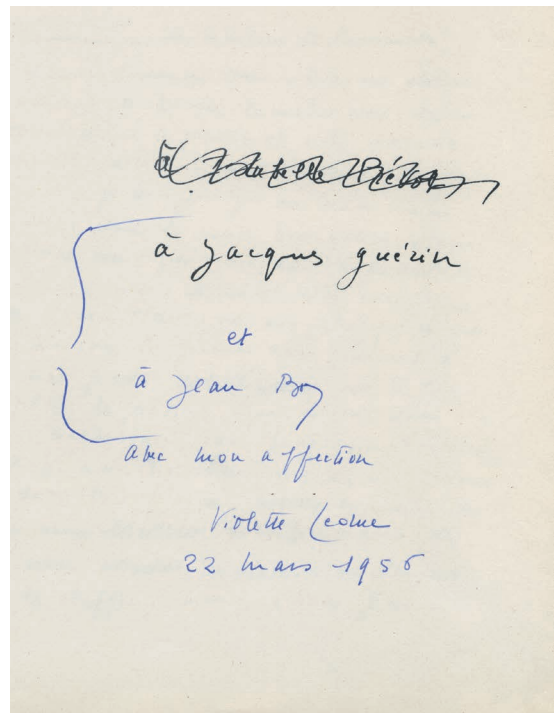 à Jacques Guérin
et
à Jean Boy
avec mon affection
Violette Leduc
22 mars 1956